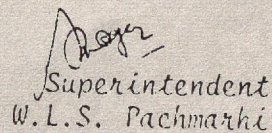 Superintendent
W.L.S. Pachmarhi